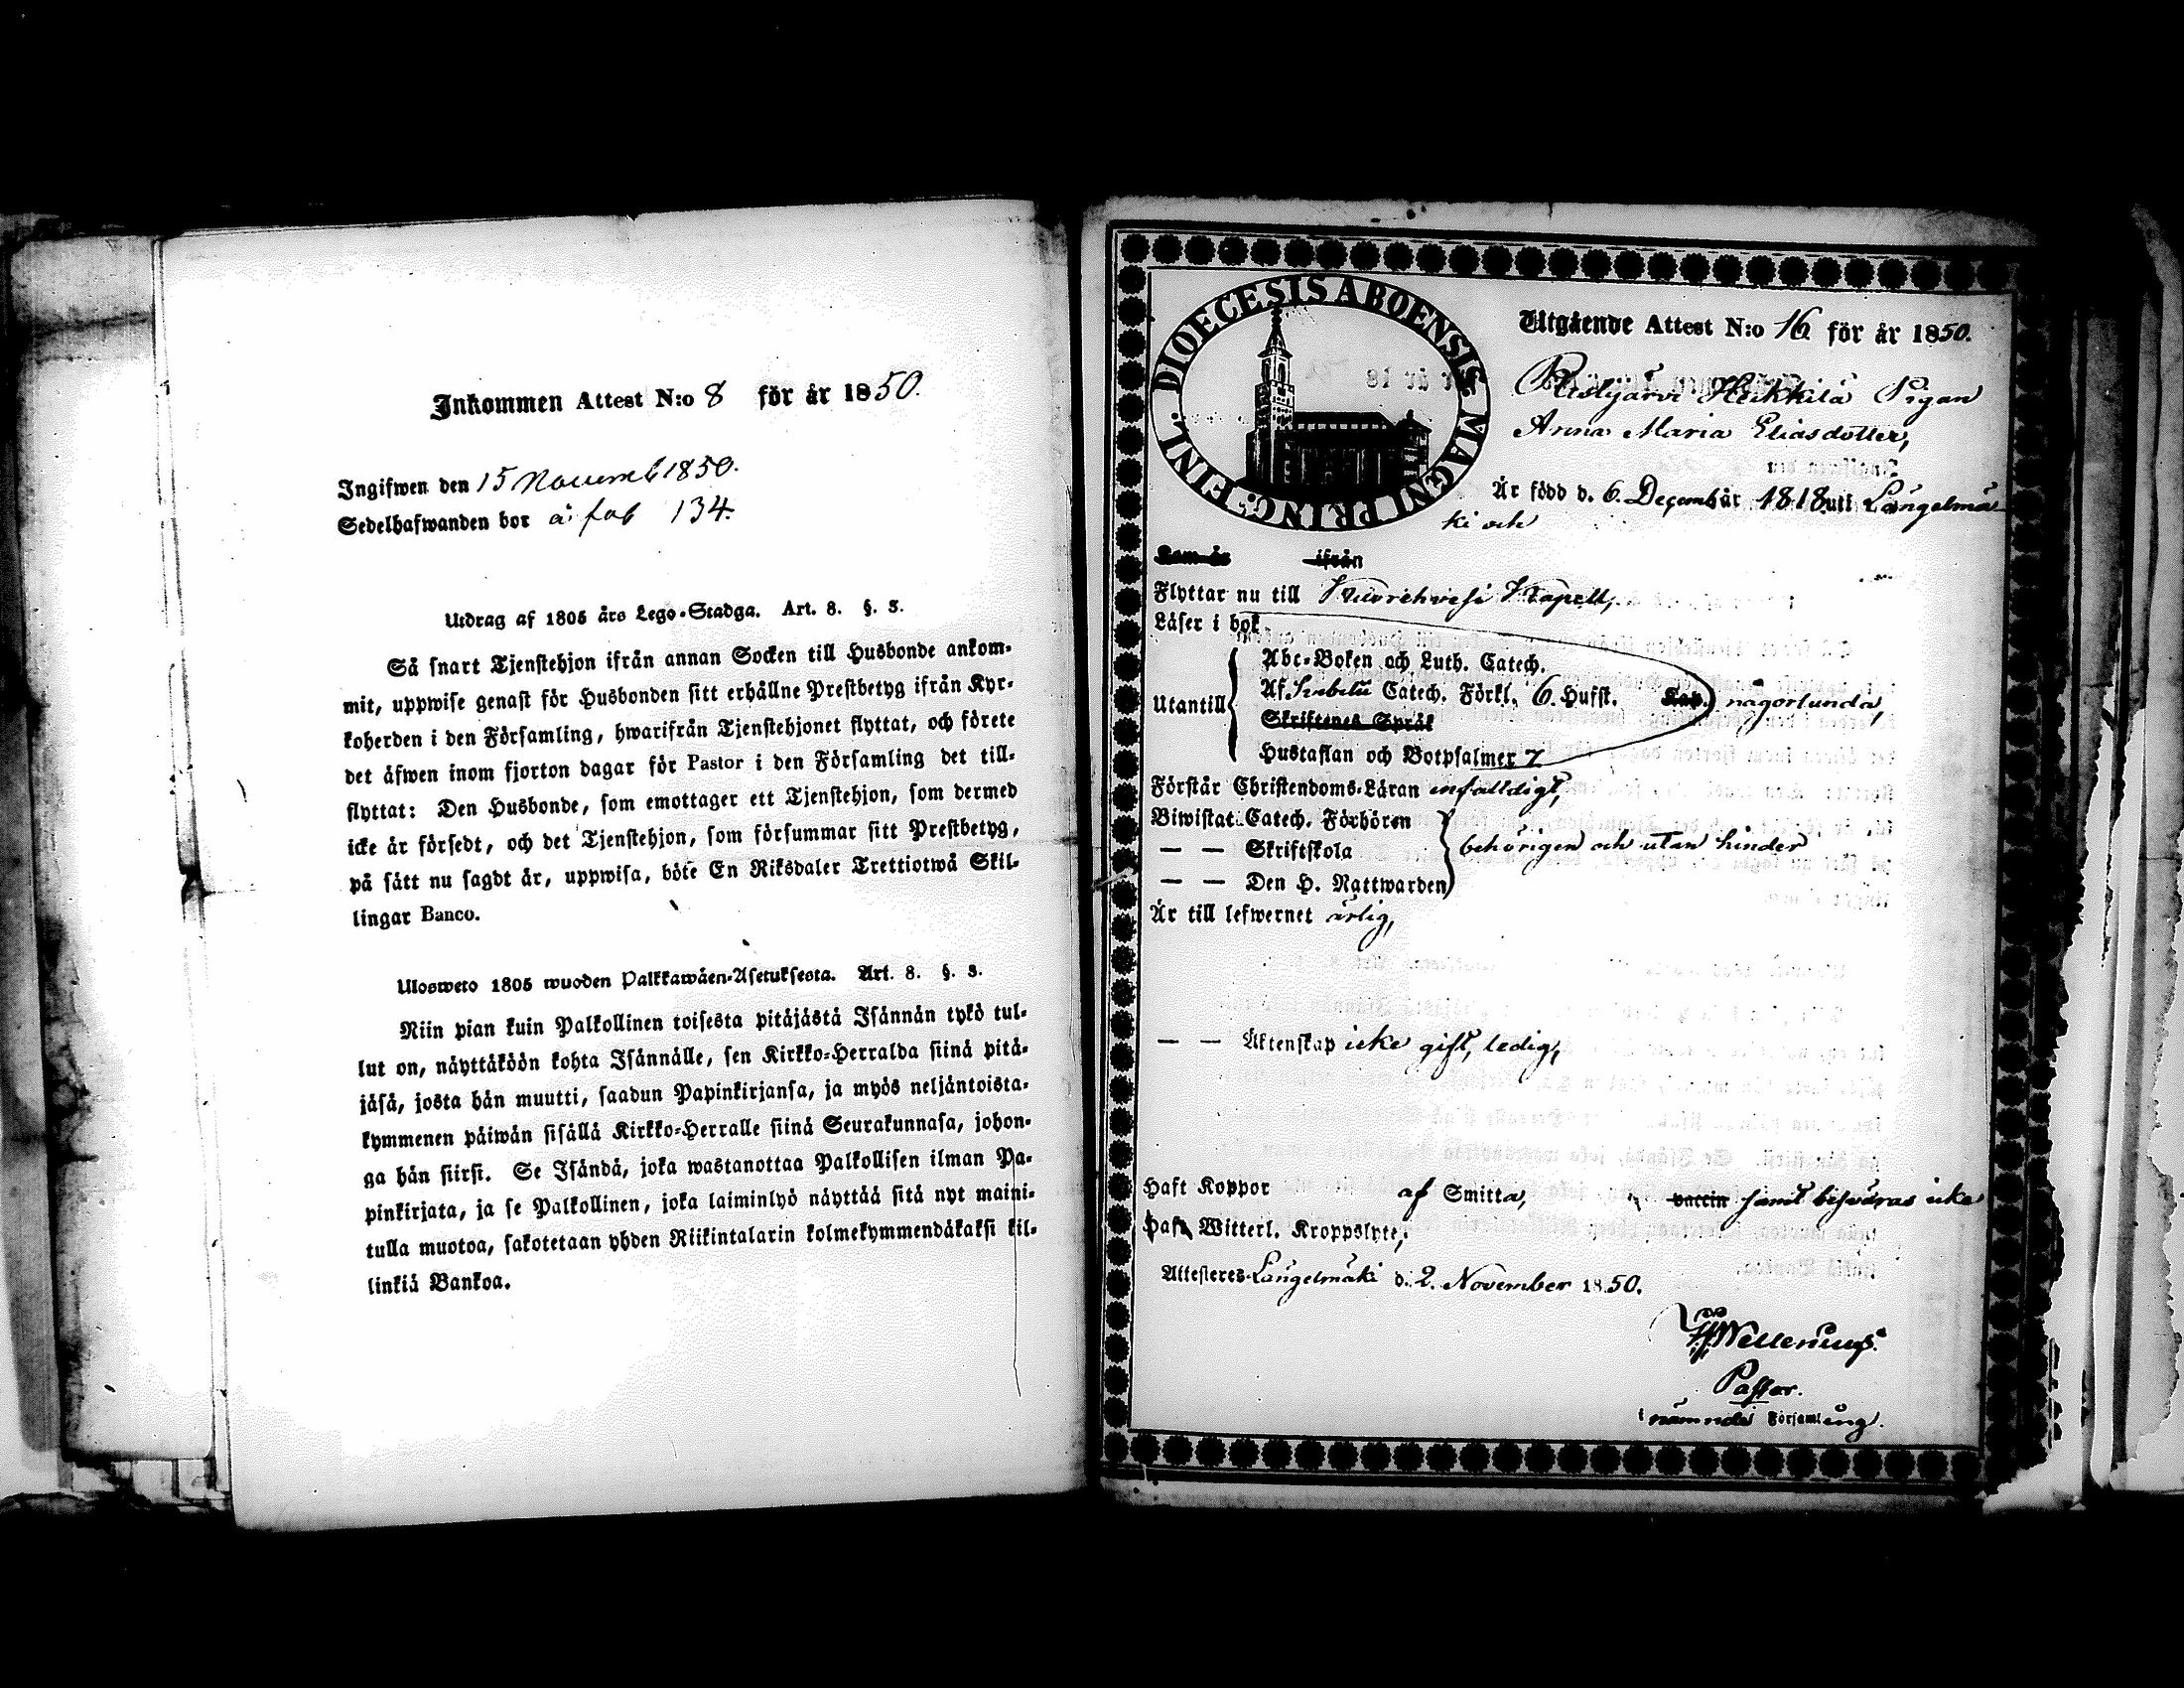 Inkommen Attest N:o 8 för år 1850.
Ingifwen den 15 Novemb 1850.
Sedelhafwanden bor å fol 134.
Utdrag af 1805 års Lego-Stadga. Art. 8. §. 3.
Så snart Tjenstehjon ifrån annan Socken till Husbonde ankom-
mit, uppwise genast för Husbonden sitt erhållne Prestbetyg ifrån Kyr-
koherden i den Församling, hwarifrån Tjenstehjonet flyttat, och förete
det äfwen inom fjorton dagar för Pastor i den Församling det till-
flyttat: Den Husbonde, som emottager ett Tjenstehjon, som dermed
icke är försedt, och det Tjenstehjon, som försummar sitt Prestbetyg,
på sätt nu sagdt är, uppwisa, böte En Riksdaler Trettiotwå Skil-
lingar Banco.
Ulosweto 1805 wuoden Palkkawäen-Asetuksesta. Art. 8. §. 3.
Niin pian kuin Palkollinen toisesta pitäjästä Isännän tykö tul-
lut on, näyttäköön kohta Isännälle, sen Kirkko-Herralda siinä pitä-
jäsä, josta hän muutti, saadun Papinkirjansa, ja myös neljäntoista-
kymmenen päiwän sisällä Kirkko-Herralle siinä Seurakunnasa, johon-
ga hän siirsi. Se Isändä, joka wastanottaa Palkollisen ilman Pa-
pinkirjata, ja se Palkollinen, joka laiminlyö näyttää sitä nyt maini-
tulla muotoa, sakotetaan yhden Riikintalarin kolmekymmendäkaksi kil-
linkiä Bankoa.
DIOECESIS ABOENSIS MAGNI PRINC. FINL.
Utgående Attest N:o 16 för år 1850.
Heikkilä Pigan
Anna Maria Eliasdotter,
Är född d. 6. Decemb år 1818 uti Längelmä
ki och
Kom år ifrån
Flyttar nu till Kuorehvesi Kapell,
Läser i bok
Utantill
Abc-Boken och Luth. Catech.
Af Svebelii Catech. Förkl. 6. Hufst. Kap. någorlunda,
Skriftenes Språk
Hustaflan och Botpsalmer 7
Förstår Christendoms-Läran enfalldigt,
Biwistat Catech. Förhören
— — Skriftskola behörigen och utan hinder
— — Den H. Nattwarden
Är till lefwernet ärlig,
— — Äktenskap icke gift, ledig,
Haft Koppor af Smitta, vaccin samt besväras icke
Haft Witterl. Kroppslyte,
Attesteres Längelmäki d. 2. November 1850.
Pastor.
i nämnde Församling.